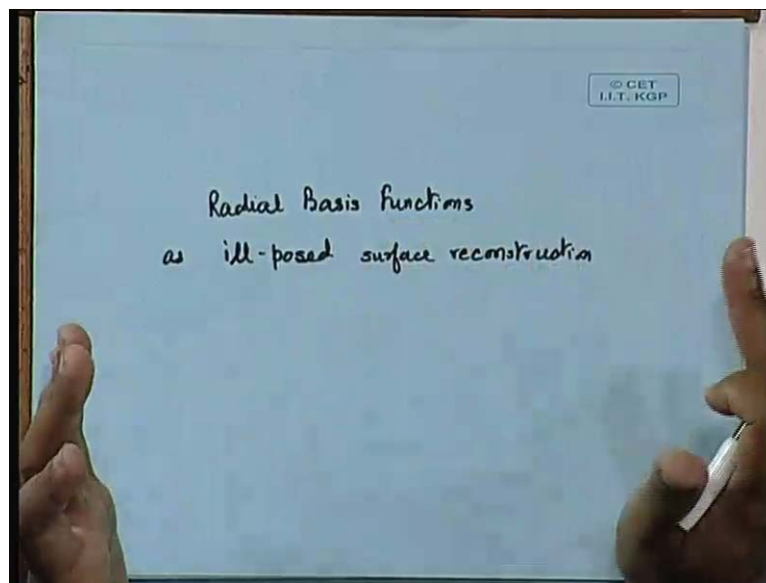 © CET
I.I.T. KGP
Radial Basis Functions
as ill-posed surface reconstruction